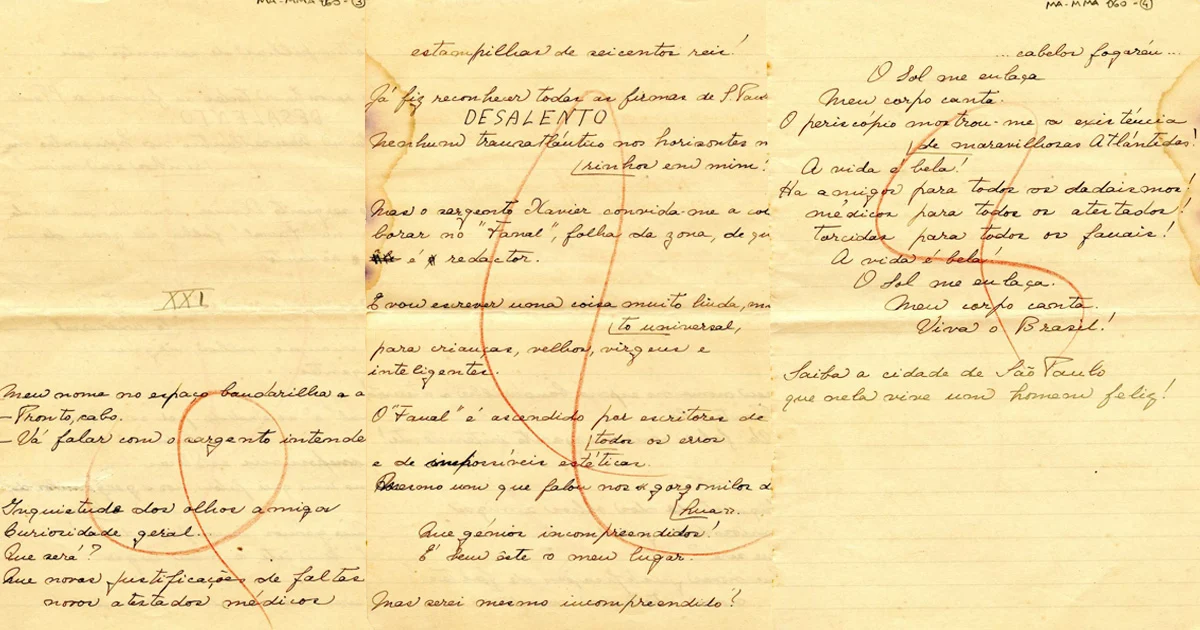 MA-MMA-060-(3)
XXI
Meu nome no espaço bandarilha a a
- Pronto, cabo.
- Vá falar com o sargento intende
Inquietude dos olhos amigos
Curiosidade geral...
Que será?
Que novas justificações de faltas
novos atestados médicos
MA-MMA-060-(4)
estampilhas de seicentos reis!
Já fiz reconhecer todas as firmas de S. Paul
DESALENTO
Nenhum transatlántico nos horizontes m
rinhos em mim!
Mas o sargento Xavier convida-me a col
borar no "Fanal", folha da zona, de qu
é redactor.
E vou escrever uma coisa muito linda, mu
to universal,
para crianças, velhos, virgens e
inteligentes.
O "Fanal" é ascendido por escritores de
todos os erros
e de impossíveis estéticas.
Mesmo um que falou nos gorgomilos d
Que génios incompreendidos!
É bem êste o meu lugar.
Mas serei mesmo incompreendido?
... cabelos fogaréu...
O Sol me enlaça
Meu corpo canta.
O periscópio mostrou-me a existência
de maravilhosas Atlántidas!
A vida é bela!
Ha amigos para todos os dadaismos!
médicos para todos os atestados!
torcidas para todos os fanais!
A vida é bela!
O Sol me enlaça.
Meu corpo canta.
Viva o Brasil!
Saiba a cidade de São Paulo
que nela vive um homem feliz!